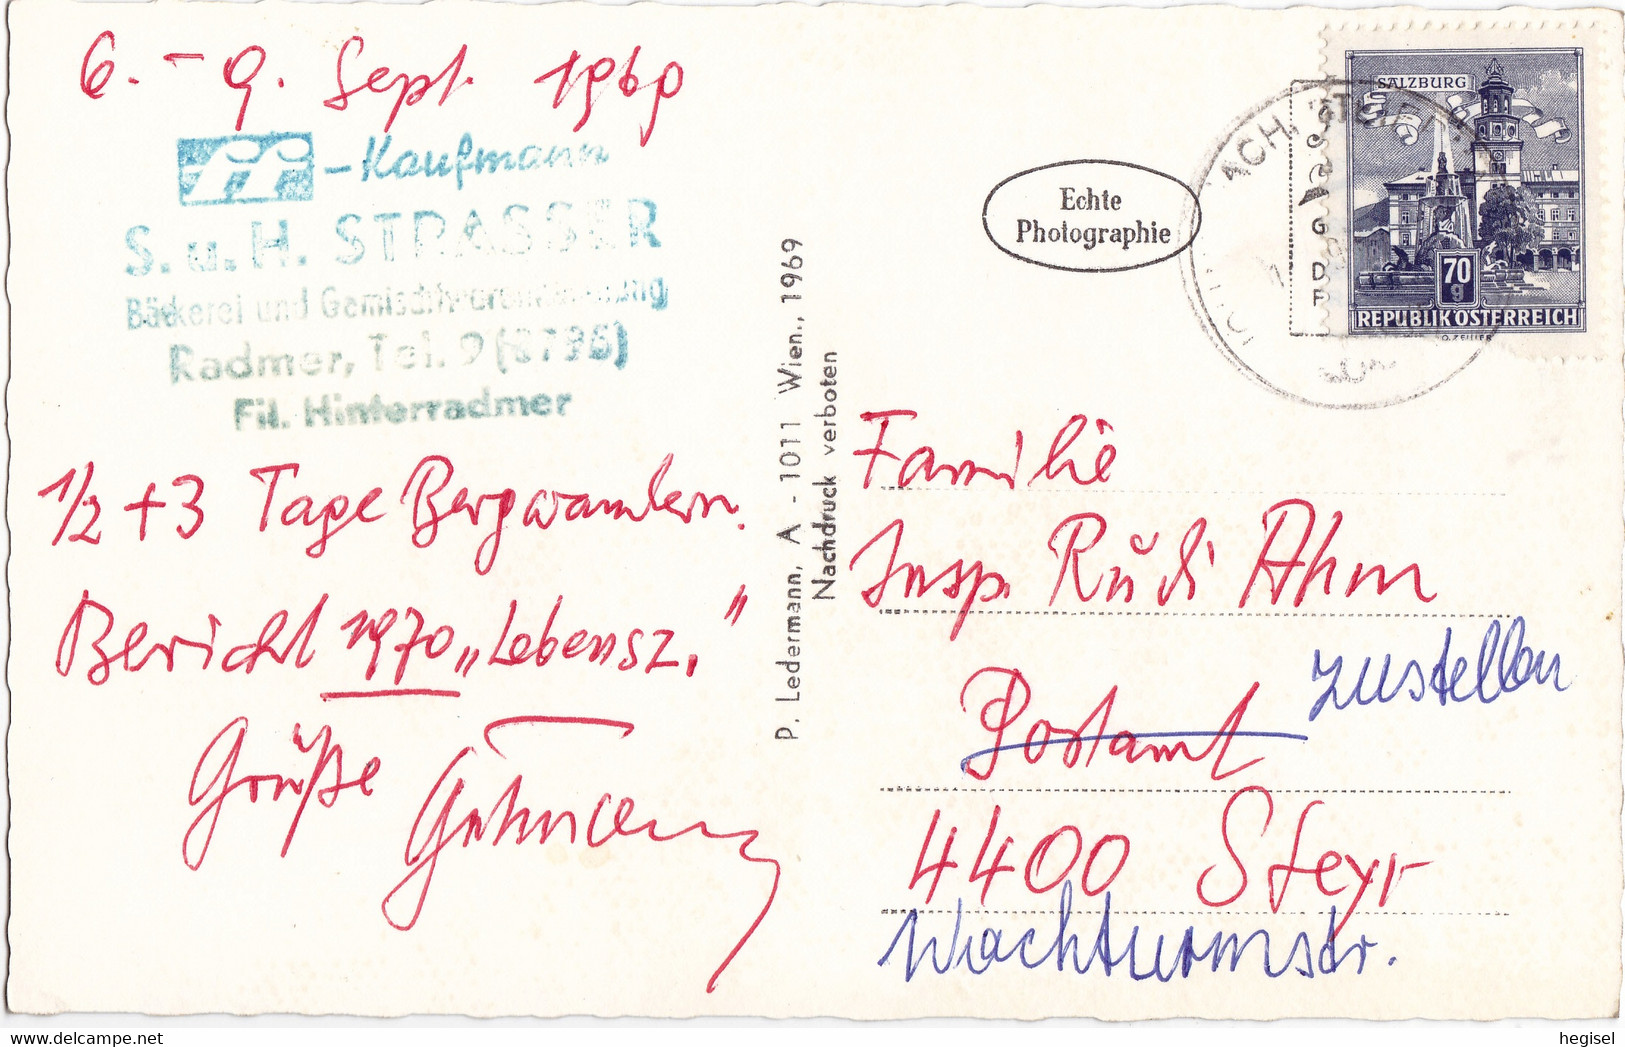 6. - 9. Sept. 1969
-Kaufmann
S. u. H. STRASSER
Bäckerei und
Radmer, Tel. 9
Fil. Hinterradmer
1/2 + 3 Tage Bergwandern.
Bericht 1970 „Lebensz."
Grüße
P. Ledermann, A - 1011 Wien., 1969
Nachdruck verboten
Echte
Photographie
SALZBURG
70
g
REPUBLIK ÖSTERREICH
Familie
Insp. Rudi Ahm
zustellen
Postamt
4400 Steyr
Wachturmstr.
hegisel